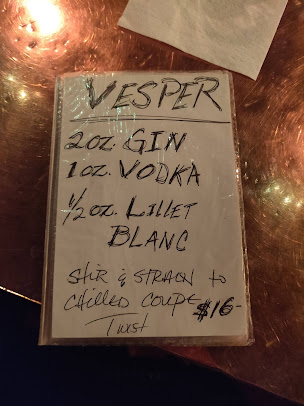 VESPER
2 oz. GIN
1 oz. VODKA
1/2 oz. LILLET
BLANC
Stir & STRAIN to
chilled COUPE $16-
Twist